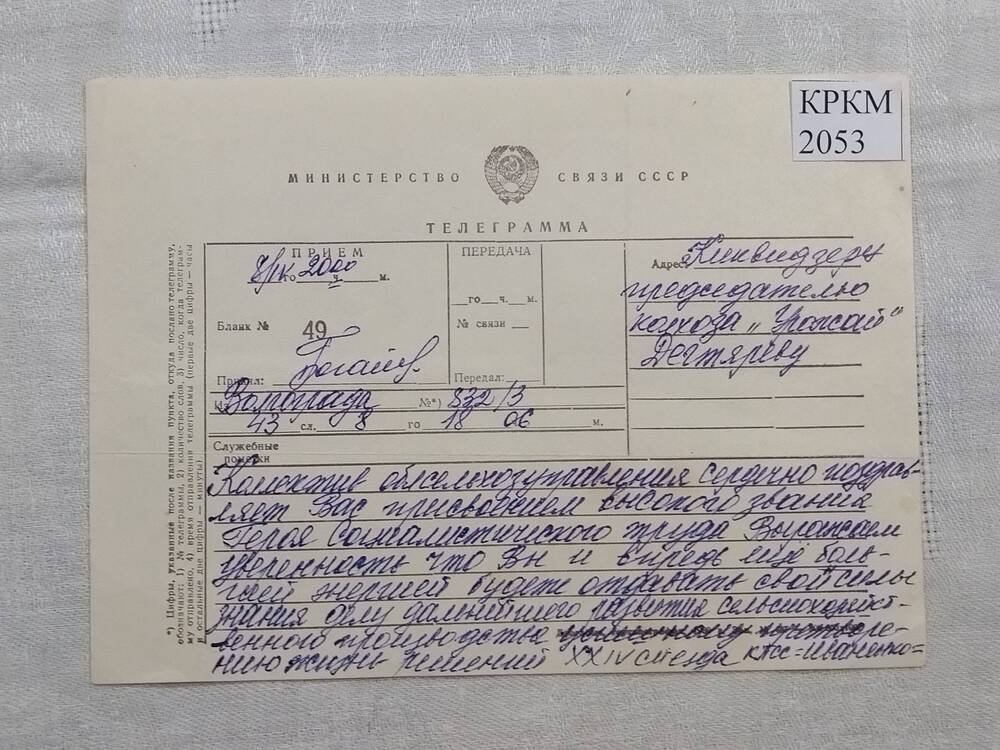 КРКМ
2053
МИНИСТЕРСТВО СВЯЗИ СССР
ТЕЛЕГРАММА
ПРИЕМ
8/IV го 20 ч. 00 м.
Бланк № 49
Принял:
ПЕРЕДАЧА
го ч. м.
№ связи
Передал:
Адрес: Киквидзерн
председателю
колхоза „Урожай"
Дегтяреву
Из Волгограда №*) 832/3
43 сл. 8 го 18 06 м.
Служебные
пометки
Коллектив облсельхозуправления сердечно поздрав-
ляет Вас присвоением высокого звания
Героя социалистического труда Выражаем
уверенность что Вы и впредь ещё боль-
шей энергией будете отдавать свои силы
знания делу дальнейшего развития сельскохозяйст-
венного производства претворе-
нию жизнь решений XXIV съезда КПСС = Иваненко =
*) Цифры, указанные после названия пункта, откуда послано телеграмму,
обозначают: 1) № телеграммы, 2) количество слов, 3) число, когда телеграм-
му отправлено, 4) время отправления телеграммы (первые две цифры — часы
и остальные две цифры — минуты)